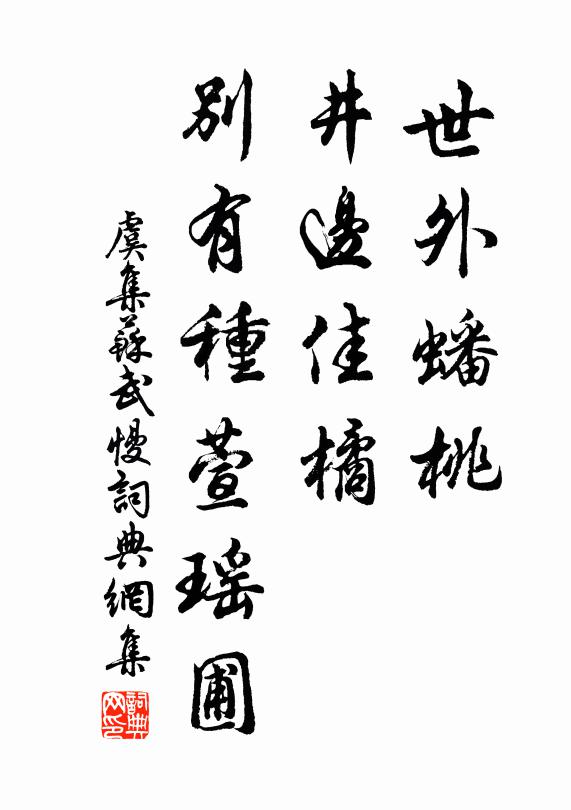 世外蟠桃
井邊佳橘
別有種萱瑤圃
虞集蘇武慢詞典網集
詞典网印